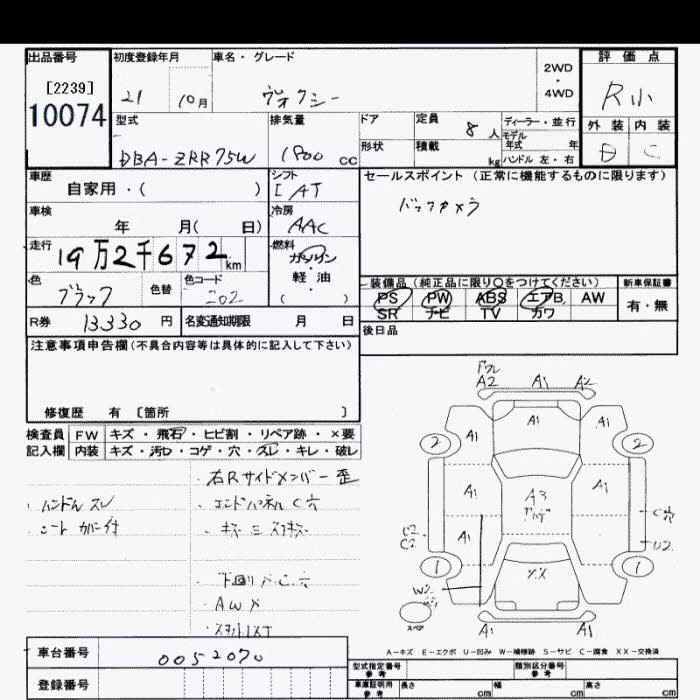 出品番号
[2239]
10074
初度登録年月
21 10月
車名・グレード
ヴォクシー
2WD
・
4WD
評価点
R小
外装 内装
C
型式
DBA-ZRR75W
排気量
1800 cc
ドア
形状
定員
8人
積載
kg
ディーラー・並行
モデル
年式 年
ハンドル 左・右
車歴
自家用・( )
シフト
I AT
セールスポイント(正常に機能するものに限ります)
バックカメラ
車検
年 月( 日)
冷房
AAC
走行
19万2千672km
燃料
ガソリン
・
軽油
( )
色
ブラック
色替
色コード
202
装備品(純正品に限り○をつけてください)
PS PW ABS エアB AW
SR ナビ TV カワ
新車保証書
有・無
R券
13330円
名変通知期限 月 日
後日品
注意事項申告欄(不具合内容等は具体的に記入して下さい)
修復歴 有 〔箇所 〕
検査員
記入欄
FW キズ・飛石・ヒビ割・リペア跡・×要
内装 キズ・汚れ・コゲ・穴・スレ・キレ・破レ
・右Rサイドメンバー歪
・ハンドルスレ
・エンドパネルC穴
・シートカバー付
・下回りC穴
・AWX
A2 A1 A2
2 A1 A1 A1 2
A1 A3 A1
C2
C2
A1
C穴
U2
1 XX 1
W2
スペア
A1 A1
A-キズ E-エクボ U-凹み W-補修跡 S-サビ C-腐食 XX-交換済
車台番号
0052070
登録番号
型式指定番号
参考
類別区分番号
参考
車庫証明用
参考
長さ cm
幅 cm
高さ cm